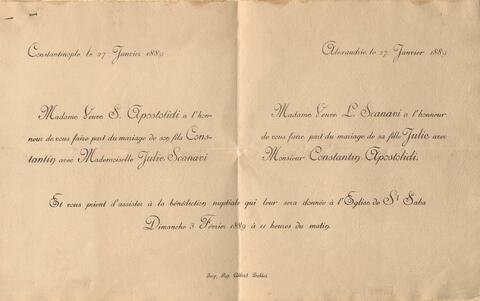 Constantinople le 27 Janvier 1889
Madame Veuve S. Apostolidi a l'hon-
neur de vous faire part du mariage de son fils Cons-
tantin avec Mademoiselle Julie Scanavi
Alexandrie le 27 Janvier 1889
Madame Veuve L. Scanavi a l'honneur
de vous faire part du mariage de sa fille Julie avec
Monsieur Constantin Apostolidi.
Et vous prient d'assister à la bénédiction nuptiale qui leur sera donnée à l'Eglise de St Saba
Dimanche 3 Février 1889 à 11 heures du matin.
Albert